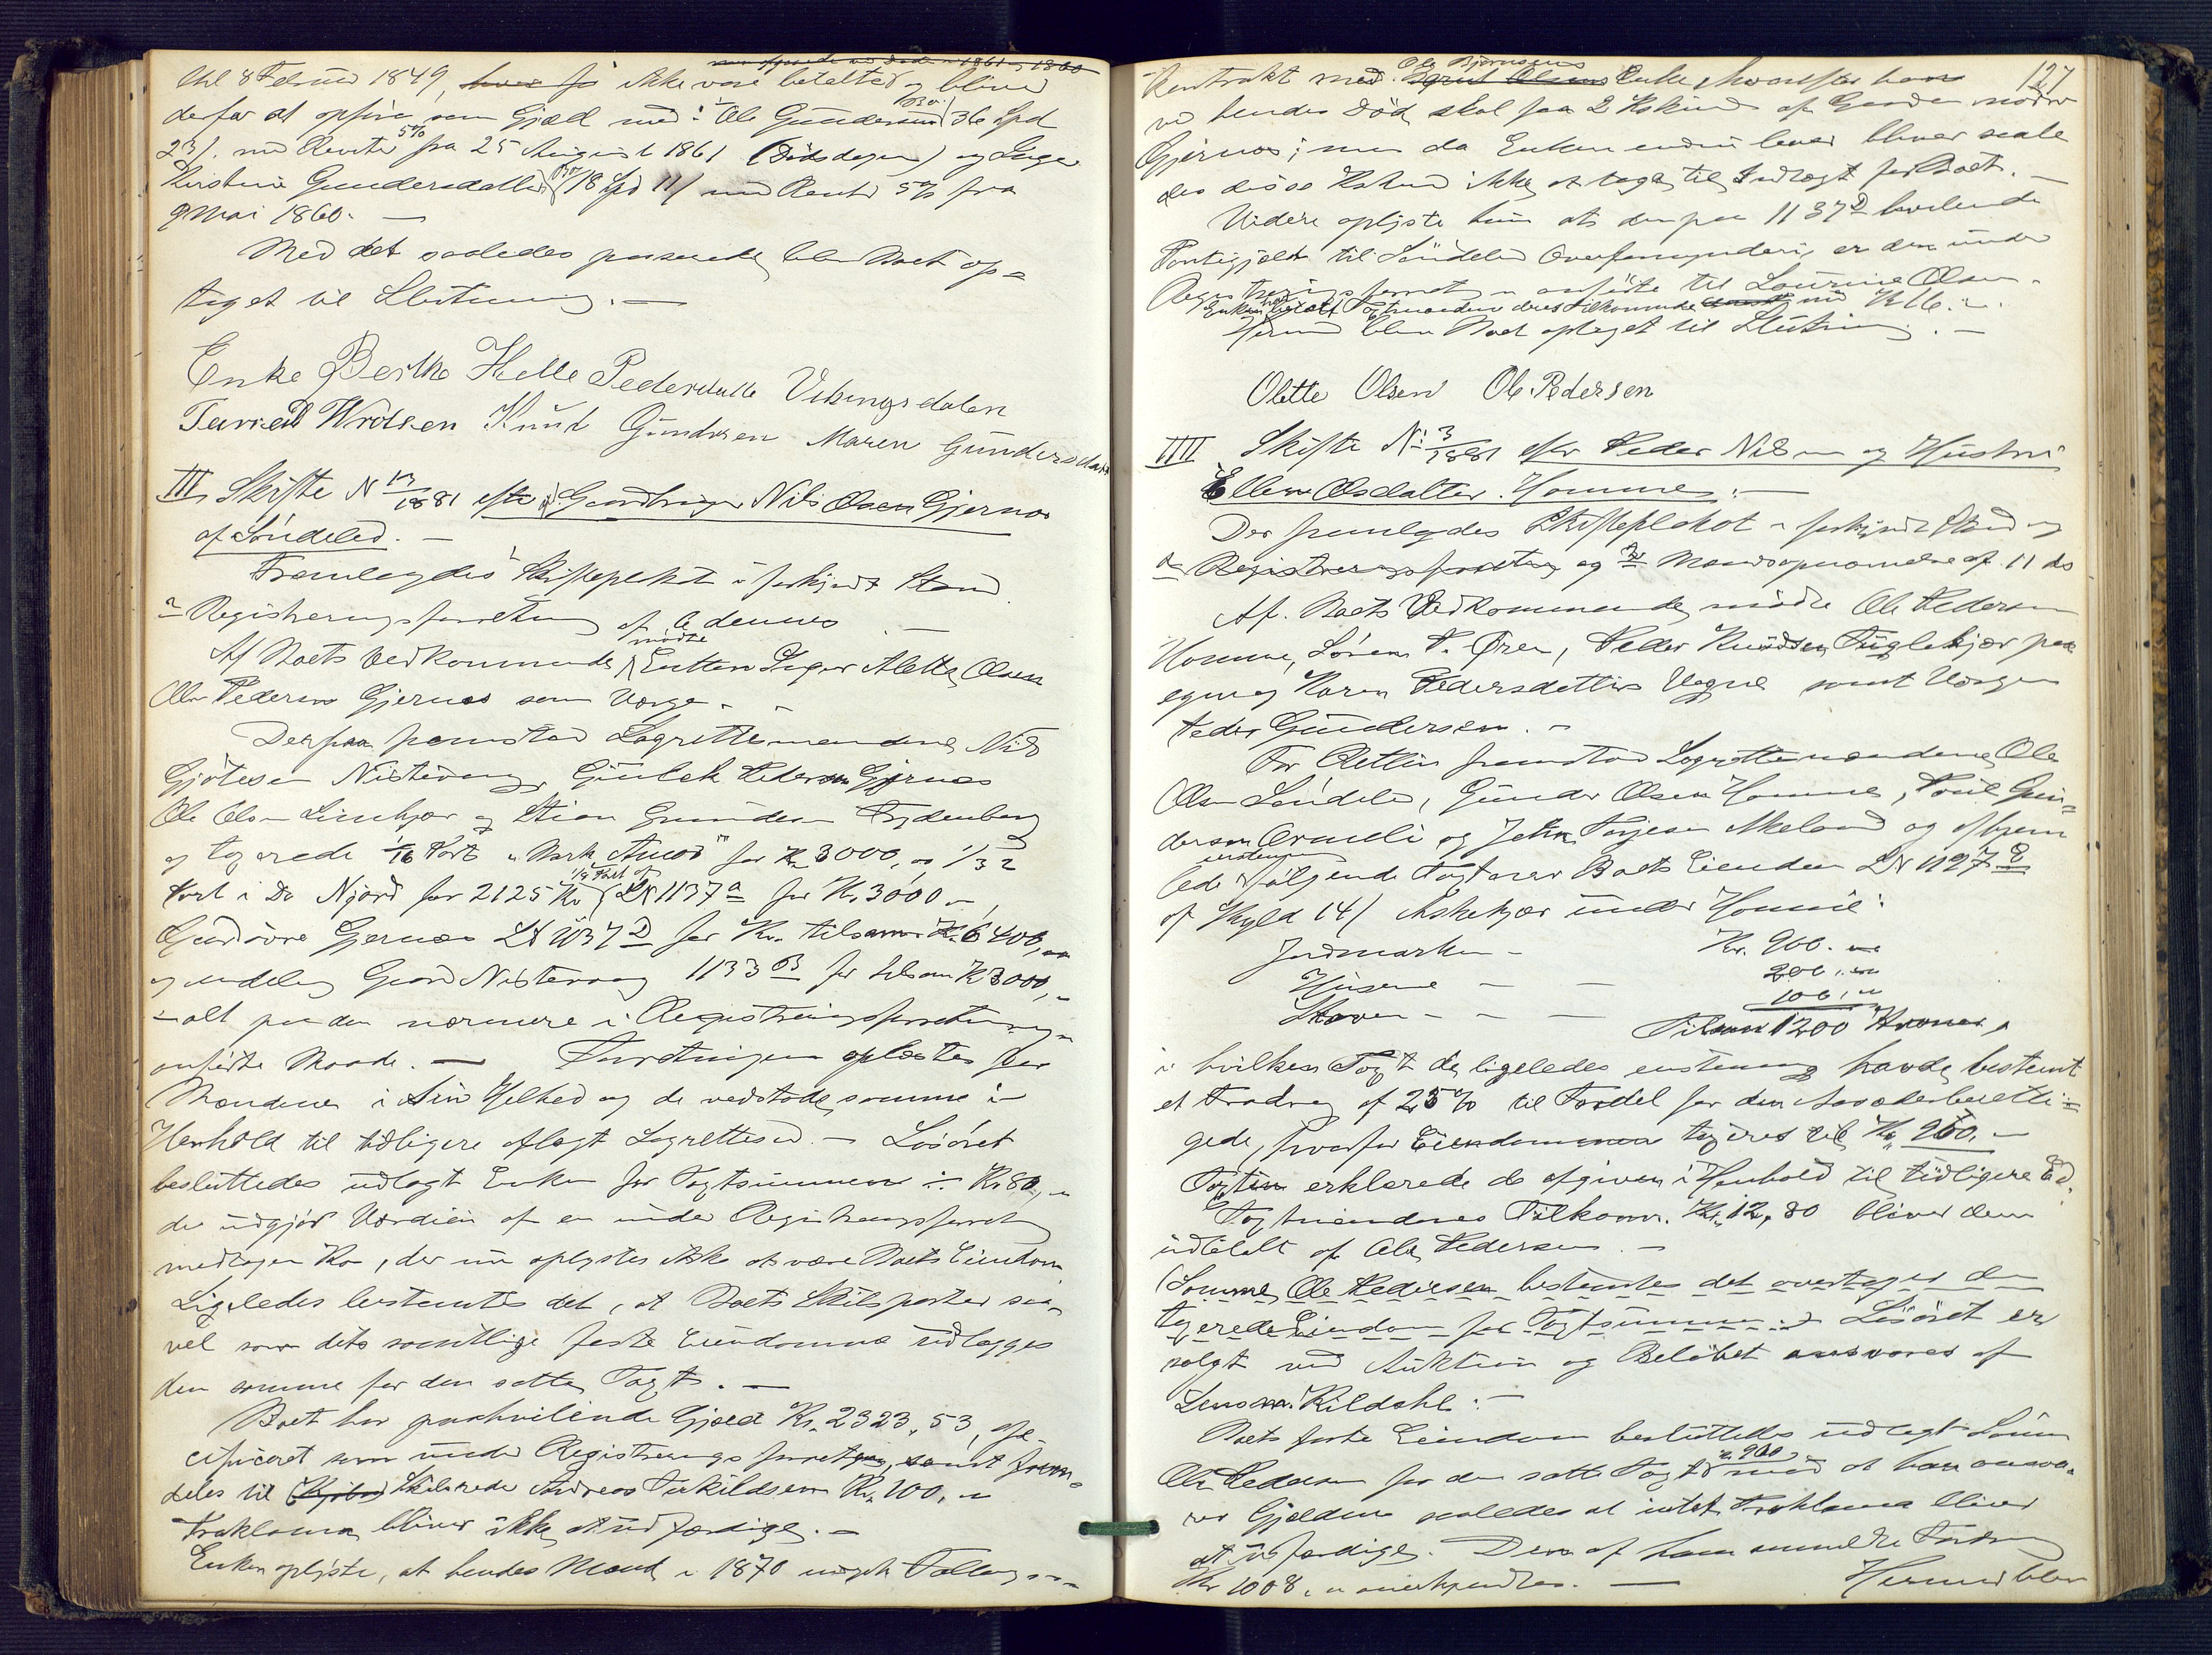 som opsagde ved Døden 1861 og 1860
thl 8 Februar 1849, hver for ikke være betalte og bliver
derfor at opføre som Gjæld med: Ole Gundersen 36 Spd
23/. med Rente 5% fra 25 August 1861 (Dødsdagen) og Inger
Kirstine Gundersdatter 18 Spd 11/ med Rente 5% fra
9 Mai 1860. —
Med det saaledes passerede blev Boet op=
taget til Slutning. —
Enke Berthe Helle Pedersdatter Vikingsdalen
Knud Gundersen Maren Gundersdatter
III Skifte N 13/1881 efter Gaardbruger Nils Olsen Gjernes
af Søndeled. —
Fremlagdes Skifteplakat i forkyndt Stand
Registreringsforretning af 6 dennes —
Af Boets Vedkommende mødte Enken Inger Alette Olsen
Ole Pedersen Gjernes som Værge.
Derpaa fremstod Lagrettemændene Nils
Gjøtesen Nistevaag, Gunlek Pedersen Gjernes
Ole Olsen Limkjær og Stian Gundersen Frydenberg
og taxerede 1/16 Part i Bark "Amor" for Kr 3000, og 1/32
Part i Do Njord for 2125 Kr 1/8 Part af LN 1137 a for Kr. 3000 —,
Gaardsøvre Gjernes LN 1137 D for Kr. tilsam. Kr 6400,
og endelig Gaard Nistevaag 1133 B for tilsam Kr 3000,
— alt paa den nærmere i Registreringsforretningen
anførte Maade. — Forretningen oplæstes for
Mændene i sin Helhed og de vedstode samme i
Henhold til tidligere aflagt Lagretteed. — Løsøret
besluttedes udlagt Enken for Taxtsummen ÷ Kr 80,
der udgjør Værdien af en under Registreringsforretn
medtagen Ko, der nu oplystes ikke at være Boets Eiendom.
Ligeledes bestemtes det, at Boets Skibsparter saa-
vel som dets samtlige faste Eiendomme udlægges
den samme for den satte Taxt. —
Boet har paahvilende Gjæld Kr. 2323,53, spe-
cificeret som under Registreringsforretning, samt frem-
deles til Skibsreder Andreas Terkildsen Kr. 100,
Proklama bliver ikke at udfærdige. —
Enken oplyste, at hendes Mand i 1870 indgik Follaugs-
127
Ole Bjørnsens
Kontrakt med Enke, hvorefter han
ved hendes Død skal faa 2 Kskind af Gaarden nedre
Gjernes; men da Enken endnu lever bliver saale
des disse ikke at tages til Indtægt for Boet. —
Videre oplyste hun at den paa 1137 D heftende
Pantegjæld til Søndeled Overformynderi, er den under
Registreringsforretn. anførte til Lourine Olsen.
Enken betalt Taxtmændene deres tilkommende med Kr 16.
Hermed blev Boet optaget til Slutning. —
Olette Olsen Ole Pedersen
IIII Skifte N: 3/1881 efter Peder Nilsen og Hustru
Ellen Olsdatter Homme: —
Der fremlagdes Skifteplakat i forkyndt Stand og
Registreringsforretning og Mandsopnævnelse af 11 ds
Af Boets Vedkommende mødte Ole Pedersen
Homme, Søren P. Øren, Peder Knudsen Fuglekjær paa
egen og Karen Pedersdatters Vegne samt Værgen
Peder Gundersen. —
For Retten fremstod Lagrettemændene Ole
Olsen Søndeled, Gunder Olsen Homme, Poul Gun-
dersen Ormeli og John Torjesen Akeland og afhjem
lede under følgende Taxt over Boets Eiendom LN 1127 E
af Skyld 14/ Askekjær under Homme:
Jordmarken — Kr. 900.
Husene — — 200,
Skoven — — — 100,
Tilsam 1200 Kroner,
i hvilken Taxt de ligeledes enstemmig havde bestemt
et Fradrag af 25% til Fordel for den Aasædesberetti=
gede, hvorfor Eiendommen taxeres til Kr. 900. —
Taxten erklærede de afgiven i Henhold til tidligere Ed.
Taxtmændenes Tilkomm. Kr. 12,80 bliver dem
udbetalt af Ole Pedersen. —
Sønnen Ole Pedersen bestemtes det overtager den
taxerede Eiendom for Taxtsummen. Løsøret er
solgt ved Auktion og Beløbet ansvares af
Lensm. Kildahl. —
Boets faste Eiendom besluttedes udlagt Sønnen
Ole Pedersen for den satte Taxt Kr. 900 mod at han ansva-
rer Gjælden saaledes at intet Proklama bliver
at udfærdige. Den af ham anmeldte Fordring
Kr 1008, anerkjendtes. — Hermed blev